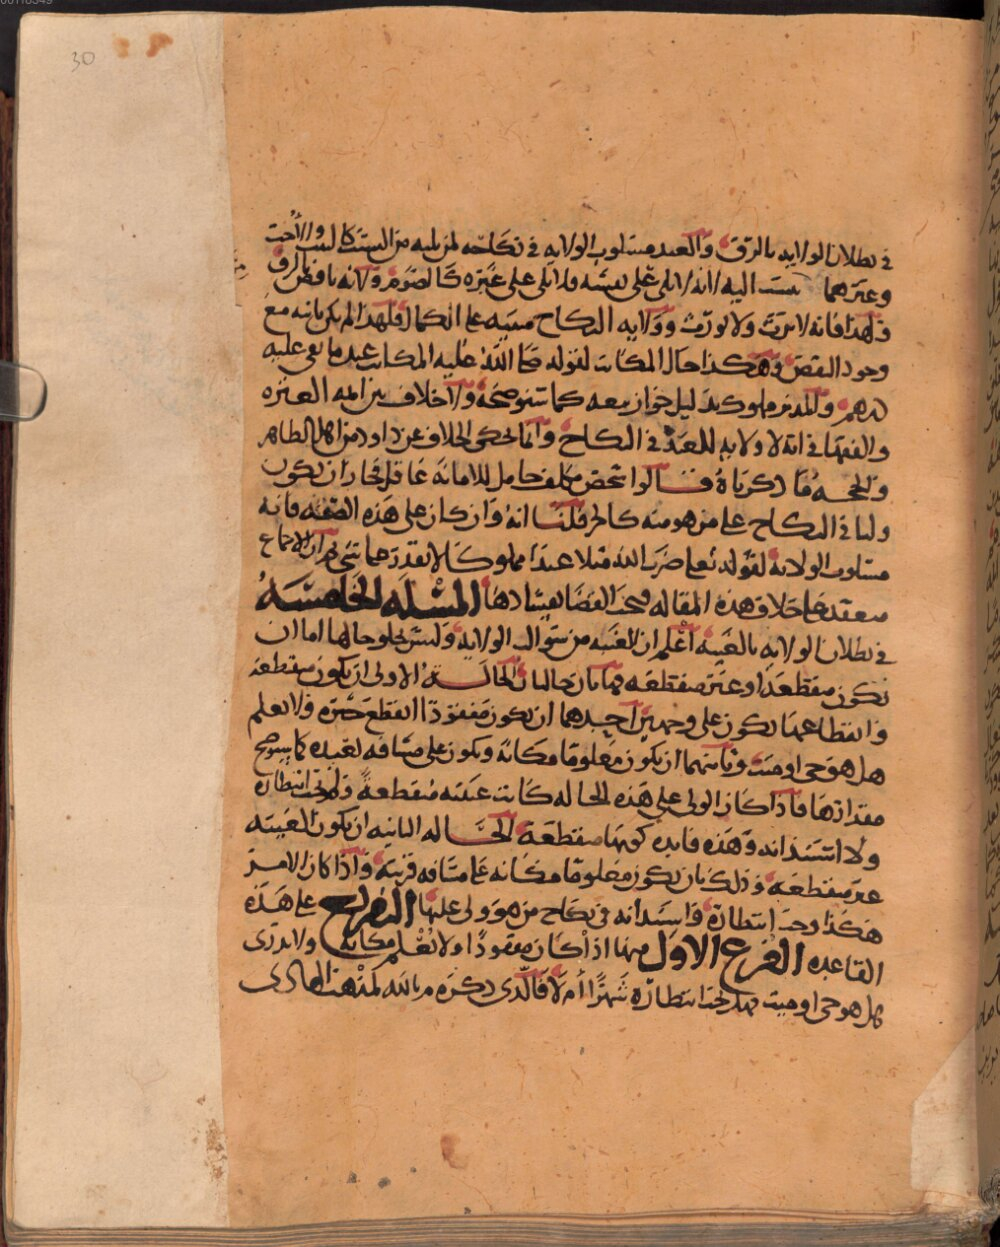 30
في بطلان الولايه بالرق والعبد مسلوب الولايه في نكاحه لمن يليه من النسب كالبنت والأخت
وغيرهما بسبب اليه لانه لا يلي على نفسه فلا يلي على غيره كالصبي ولانه ناقص بالرق
ولهذا فانه لا يرث ولا يورث وولايه النكاح مبنيه على الكمال فلهذا لم يكن ثابته مع
وجود النقص وهكذا حال المكاتب لقوله صلى الله عليه المكاتب عبد ما بقي عليه
درهم والمدبر مملوك بدليل جواز بيعه كما سنوضحه ولا خلاف بين ايمه العتره
والفقها في انه لا ولايه للعبد في النكاح وانما يحكى الخلاف عن داود من اهل الظاهر
والحجه ما ذكرناه قالوا شخص مكلف حامل للامانه عاقل فجاز ان يكون
وليا في النكاح على من هو منه كالحر قلنا انه وان كان على هذه الصفه فانه
مسلوب الولايه لقوله تعلى ضرب الله مثلا عبدا مملوكا لا يقدر على شي ثم ان الاجماع
منعقد على خلاف هذه المقاله فيجب القضا بفسادها المسئله الخامسه
في بطلان الولايه بالغيبه اعلم ان الغيبه من سوالب الولايه وليس يخلو حالها اما ان
تكون منقطعه او غير منقطعه فهاتان حالتان الحاله الاولى ان يكون منقطعه
وانقطاعها يكون على وجهين احدهما ان يكون مفقودا انقطع خبره فلا يعلم
هل هو حي او ميت وثانيهما ان يكون معلوما مكانه ويكون على مسافه بعيده كما سنوضح
مقدارها فاذا كان الولي على هذه الحاله كانت غيبته منقطعة ولم يجب انتظاره
ولا استئذانه وهذه فايده كونها منقطعة الحاله الثانيه ان يكون الغيبه
غير منقطعه وذلك بان يكون معلوما مكانه على مسافه قريبه واذا كان الامر
هكذا وجب انتظاره واستئذانه في نكاح من هو ولي عليها التفريع على هذه
القاعده الفرع الاول مهما اذا كان مفقودا ولا يعلم مكانه ولا يدرى
هل هو حي او ميت فهل يجب انتظاره شهرًا أم لا فالذي ذكره م بالله لمذهب الهادى